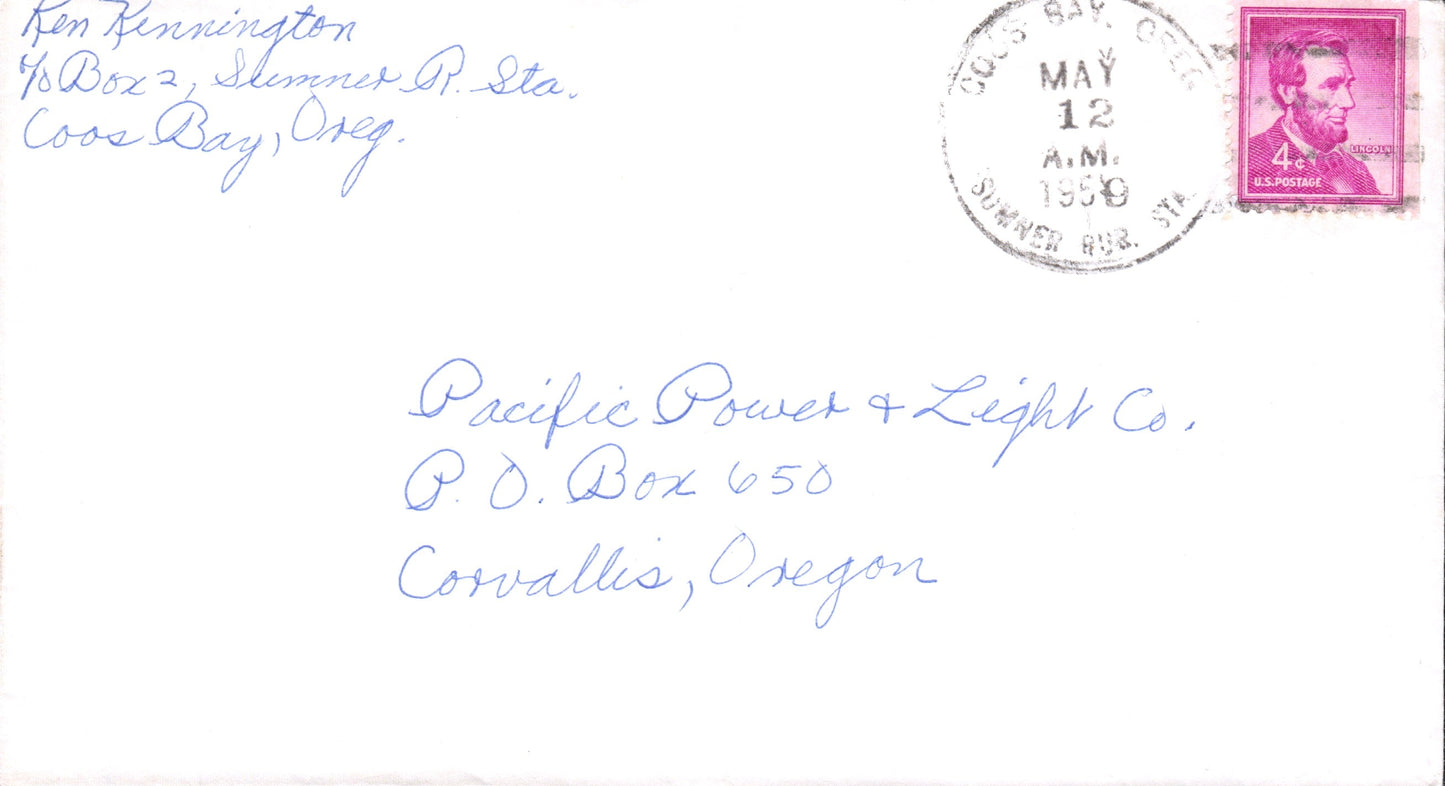 Ken Kennington
℅ Box 2, Sumner R. Sta.
Coos Bay, Oreg.
COOS BAY, OREG.
MAY
12
A.M.
SUMNER RUR. STA.
LINCOLN
4¢
U.S. POSTAGE
Pacific Power & Light Co.
P. O. Box 650
Corvallis, Oregon